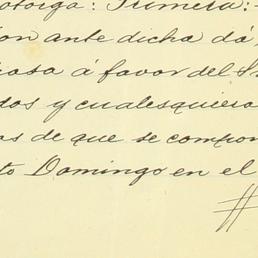 otorga: Primera:-
ion ante dicha dá,
rosa á favor del S
dos y cualesquiera
as de que se compon
to Domingo en el